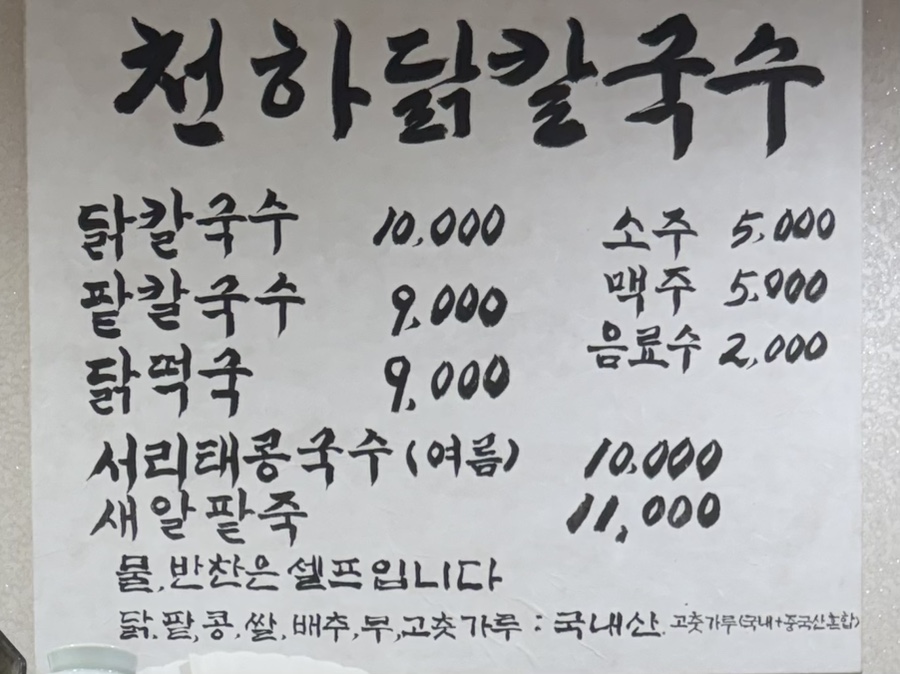 천하닭칼국수
닭칼국수 10,000 소주 5,000
팥칼국수 9,000 맥주 5,000
닭떡국 9,000 음료수 2,000
서리태콩국수(여름) 10,000
새알팥죽 11,000
물, 반찬은 셀프입니다
닭, 팥, 콩, 쌀, 배추, 무, 고춧가루 : 국내산. 고춧가루(국내+중국산혼합)